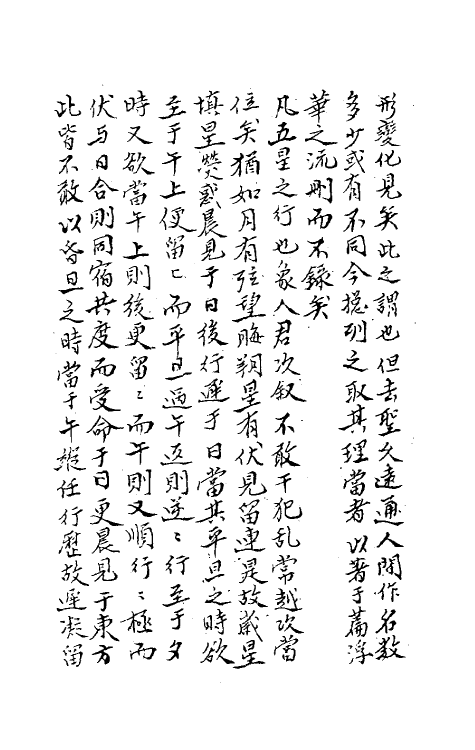 形變化見矣此之謂也但去聖久遠通人間作名教
多少或有不同今揔列之取其理當者以著于篇浮
華之流刪而不錄矣
凡五星之行也象人君次叙不敢干犯乱常越次當
位矣猶如月有弦望晦朔星有伏見留連是故歲星
填星熒惑晨見于日後行遲于日當其平旦之時欲
至于午上便留〻而平旦過午返則逆〻行至于夕
時又欲當午上則後更留〻而午則又順行〻極而
伏与日合則同宿共度而受命于日更晨見于東方
此皆不敢以昏旦之時當于午縱任行歷故遲凝留